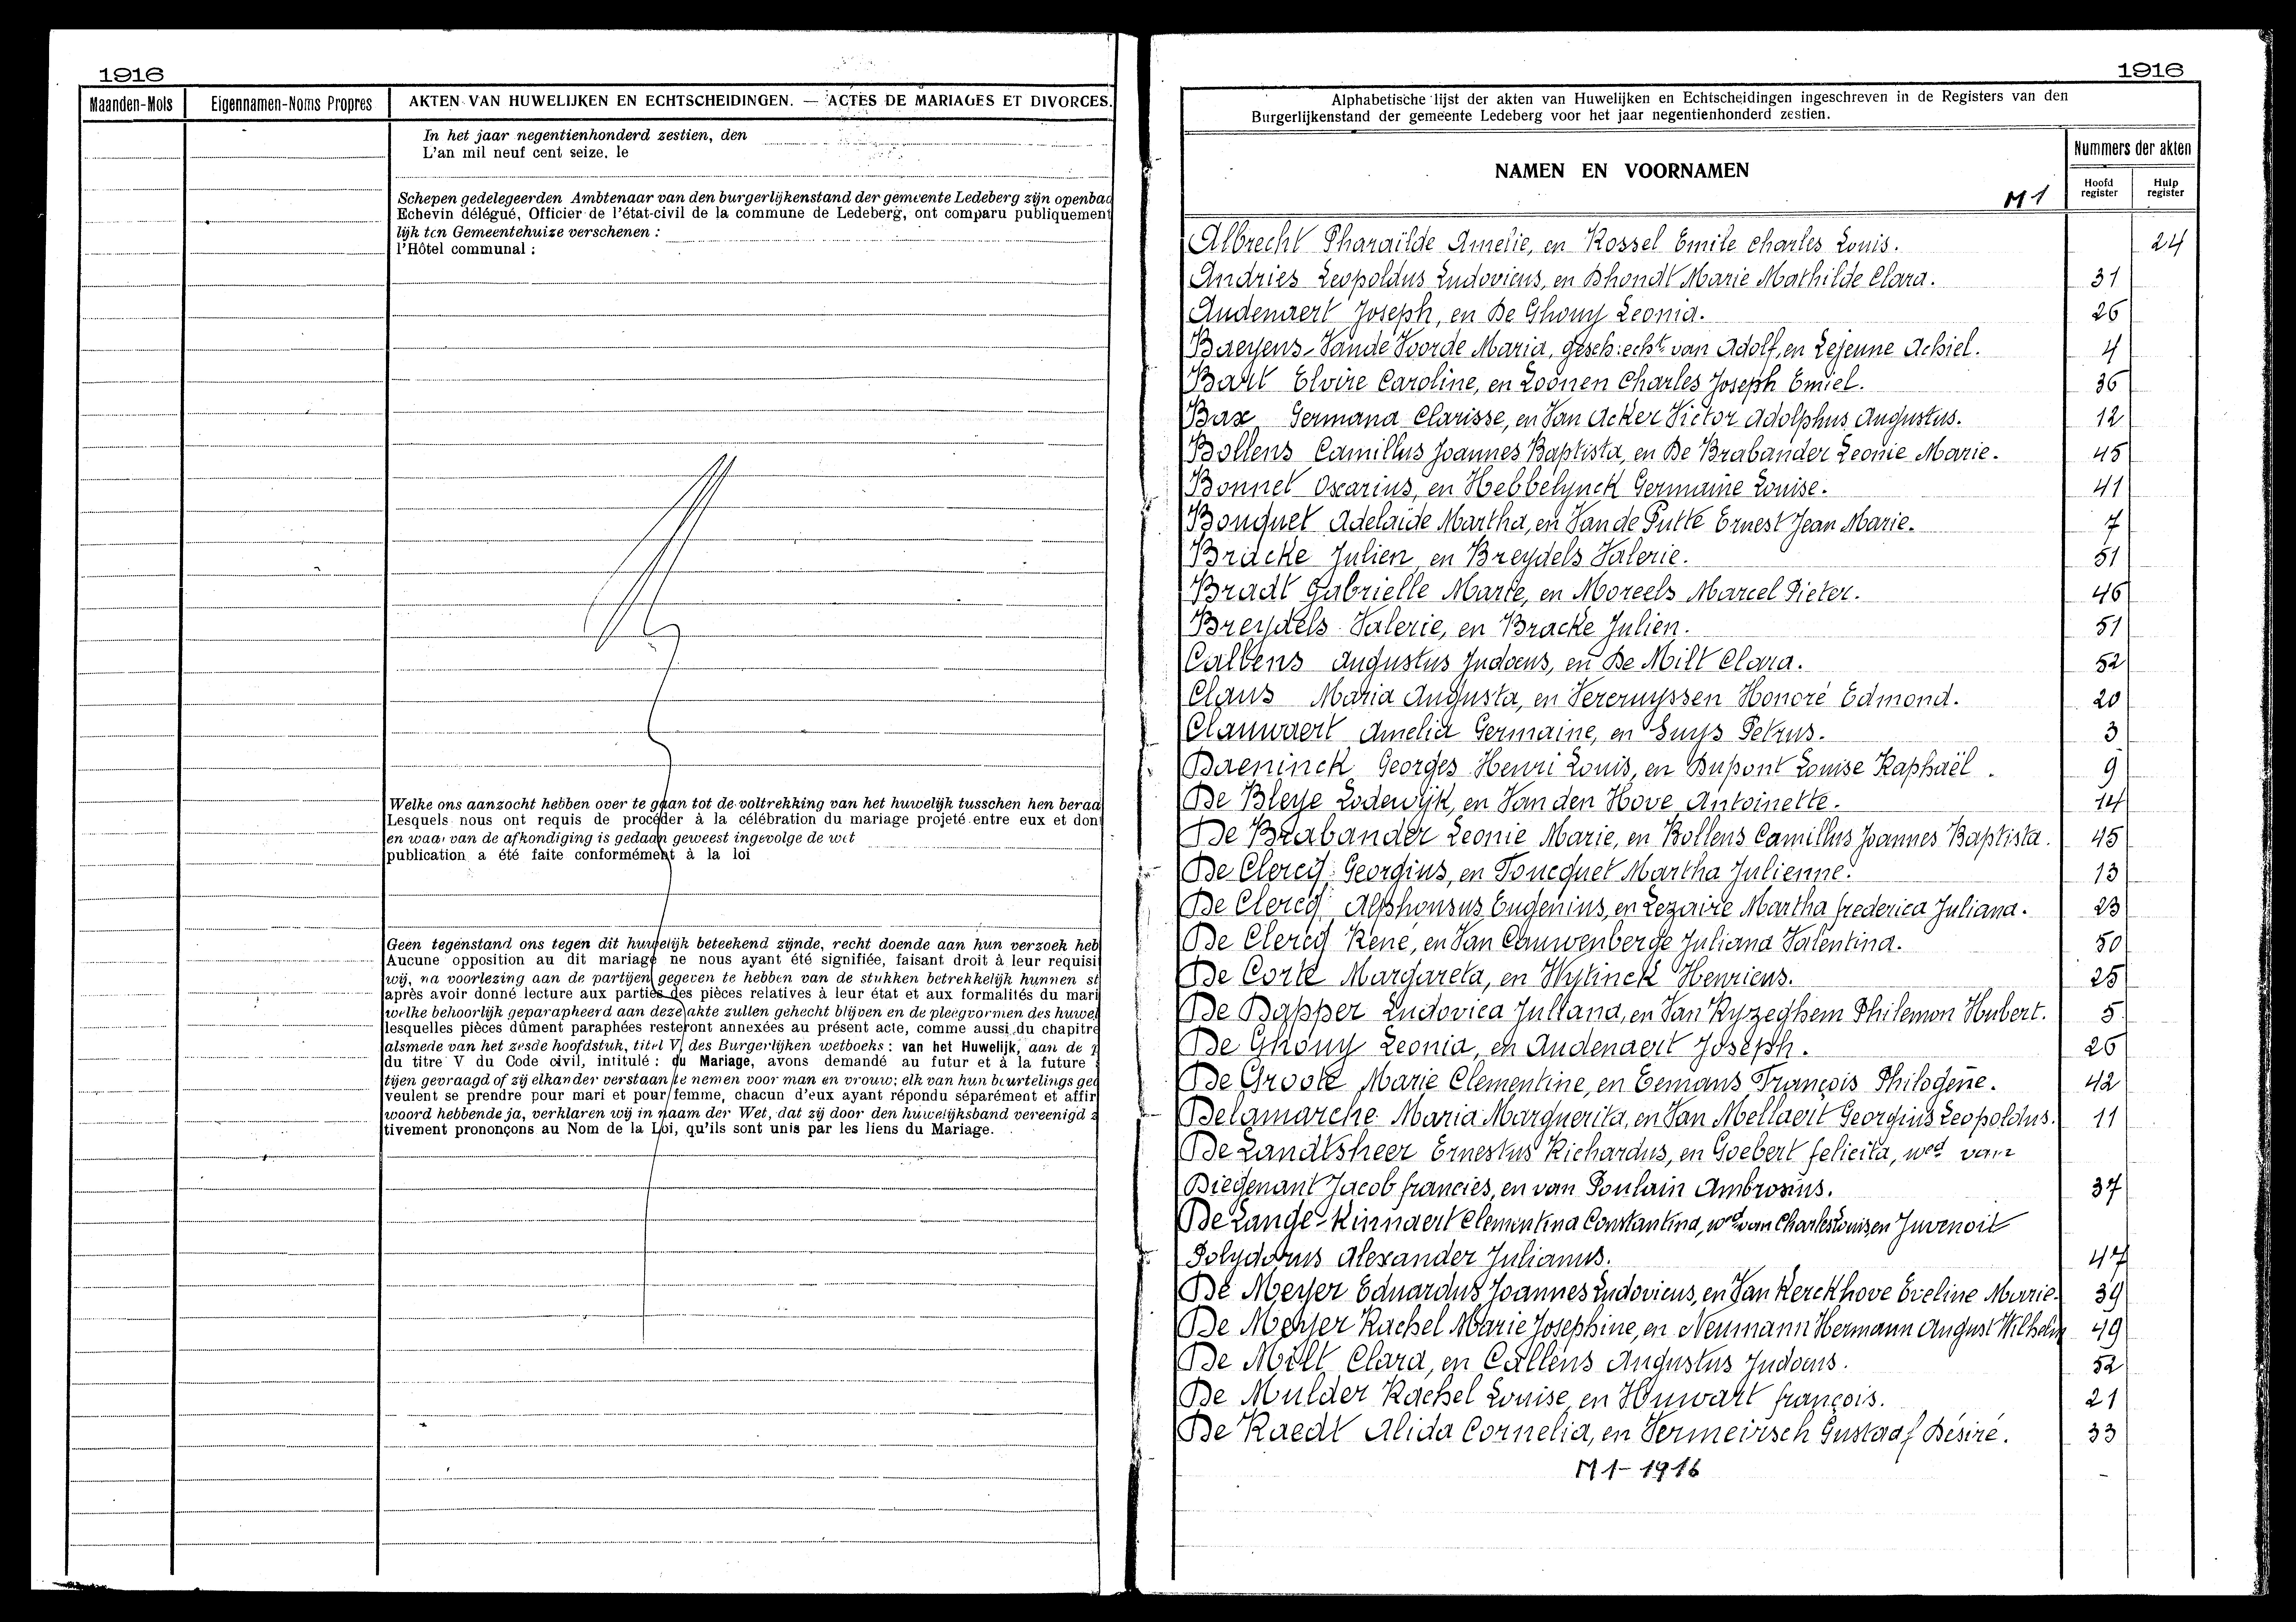 1916
Maanden-Mois
Eigennamen-Noms Propres
AKTEN VAN HUWELIJKEN EN ECHTSCHEIDINGEN. — ACTES DE MARIAGES ET DIVORCES.
In het jaar negentienhonderd zestien, den
L'an mil neuf cent seize, le
Schepen gedelegeerden Ambtenaar van den burgerlijkenstand der gemeente Ledeberg zijn openbaa
Echevin délégué, Officier de l'état-civil de la commune de Ledeberg, ont comparu publiquement
lijk ten Gemeentehuize verschenen :
l'Hôtel communal :
Welke ons aanzocht hebben over te gaan tot de voltrekking van het huwelijk tusschen hen beraa
Lesquels nous ont requis de procéder à la célébration du mariage projeté entre eux et dont
en waarvan de afkondiging is gedaan geweest ingevolge de wet
publication a été faite conformément à la loi
Geen tegenstand ons tegen dit huwelijk beteekend zijnde, recht doende aan hun verzoek heb
Aucune opposition au dit mariage ne nous ayant été signifiée, faisant droit à leur requisi
wij, na voorlezing aan de partijen gegeven te hebben van de stukken betrekkelijk hunnen st
après avoir donné lecture aux parties des pièces relatives à leur état et aux formalités du mari
welke behoorlijk geparapheerd aan deze akte zullen gehecht blijven en de pleegvormen des huwel
lesquelles pièces dûment paraphées resteront annexées au présent acte, comme aussi du chapitre
alsmede van het zesde hoofdstuk, titel V des Burgerlijken wetboeks : van het Huwelijk, aan de
du titre V du Code civil, intitulé : du Mariage, avons demandé au futur et à la future
tijen gevraagd of zij elkander verstaan te nemen voor man en vrouw; elk van hun beurtelings ge
veulent se prendre pour mari et pour femme, chacun d'eux ayant répondu séparément et affir
woord hebbende ja, verklaren wij in naam der Wet, dat zij door den huwelijksband vereenigd z
tivement prononçons au Nom de la Loi, qu'ils sont unis par les liens du Mariage.
1916
Alphabetische lijst der akten van Huwelijken en Echtscheidingen ingeschreven in de Registers van den
Burgerlijkenstand der gemeente Ledeberg voor het jaar negentienhonderd zestien.
NAMEN EN VOORNAMEN
M 1
Nummers der akten
Hoofd register
Hulp register
Albrecht Pharaïlde Amelie, en Rossel Emile Charles Louis. 24
Andries Leopoldus Ludovicus, en Dhondt Marie Mathilde Clara. 31
Audenaert Joseph, en De Ghouy Leonia. 26
Baeyens-Vande Voorde Maria, gesch: echt van Adolf, en Lejeune Achiel. 4
Bart Elvire Caroline, en Loonen Charles Joseph Emiel. 36
Bax Germana Clarisse, en Van Acker Victor Adolphus Augustus. 12
Bollens Camillus Joannes Baptista, en De Brabander Leonie Marie. 45
Bonnet Oscarius, en Hebbelynck Germaine Louise. 41
Bouquet Adelaïde Martha, en Vande Putte Ernest Jean Marie. 7
Bracke Julien, en Breydels Valerie. 51
Bradt Gabrielle Marie, en Moreels Marcel Pieter. 46
Breydels Valerie, en Bracke Julien. 51
Callens Augustus Judocus, en De Milt Clara. 52
Claus Maria Augusta, en Vereruyssen Honoré Edmond. 20
Clauwaert Amelia Germaine, en Suys Petrus. 3
Daeninck Georges Henri Louis, en Dupont Louise Raphaël. 9
De Bleye Lodewijk, en Van den Hove Antoinette. 14
De Brabander Leonie Marie, en Bollens Camillus Joannes Baptista. 45
De Clercq Georgius, en Foucquet Martha Julienne. 13
De Clercq Alphonsus Eugenius, en Lezaire Martha frederica Juliana. 23
De Clercq René, en Van Cauwenberge Juliana Valentina. 50
De Corte Margareta, en Wytinck Henricus. 25
De Dapper Ludovica Juliana, en Van Ryzeghem Philemon Hubert. 5
De Ghouy Leonia, en Audenaert Joseph. 26
De Groote Marie Clementine, en Eemans François Philogène. 42
Delamarche Maria Marguerita, en Van Mellaert Georgius Leopoldus. 11
De Landtsheer Ernestus Richardus, en Goebert felicita, wed van
Diegenant Jacob francies, en van Poulain Ambrosius. 37
De Lange-Rinnaert Clementina Constantina, wed van Charles Louis, en Juvenoit
Polydorus Alexander Julianus. 47
De Meyer Eduardus Joannes Ludovicus, en Van Kerckhove Eveline Marie. 39
De Meyer Rachel Marie Josephine, en Neumann Hermann August Wilhelm 49
De Milt Clara, en Callens Augustus Judocus. 52
De Mulder Rachel Louise, en Huwart françois. 21
De Raedt Alida Cornelia, en Vermeirsch Gustaaf Désiré. 33
M 1 - 1916